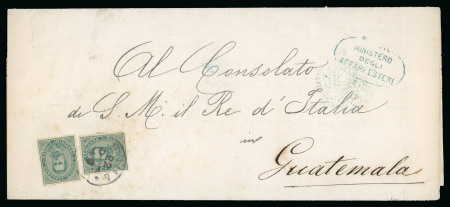 MINISTERO
DEGLI
AFFARI ESTERI
Al Consolato
di S. M. il Re d'Italia
in
Guatemala